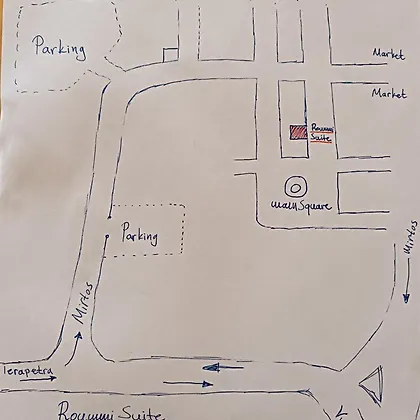 Parking
Market
Market
Roummi
Suite
main Square
Parking
Mirtos
Mirtos
Ierapetra
Rouumi Suite